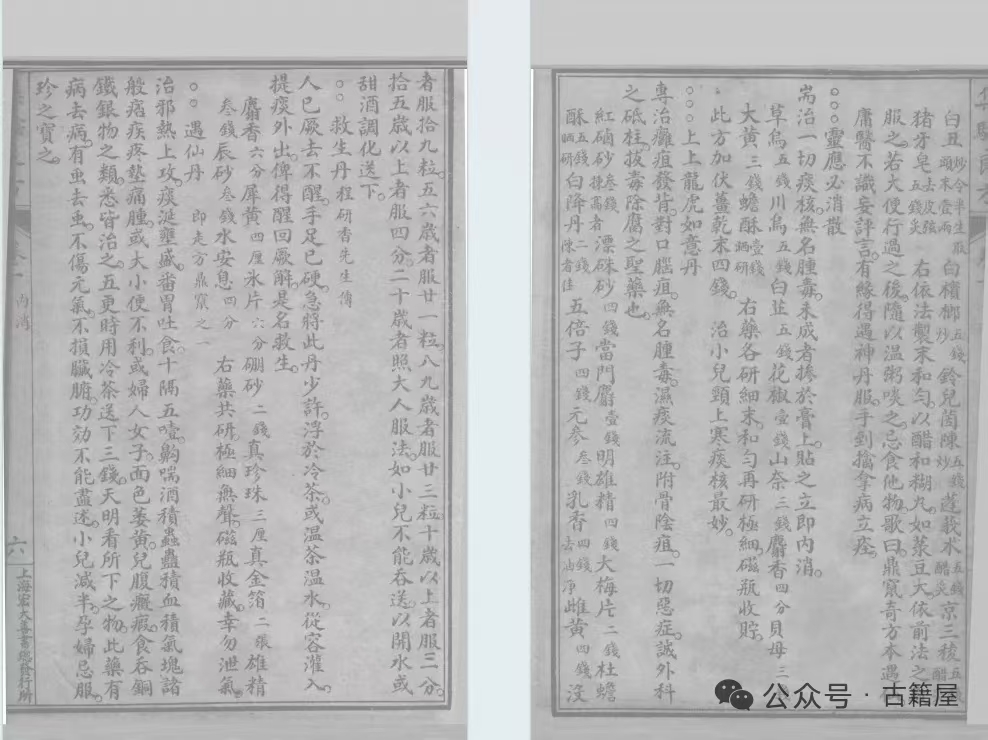 者服拾九粒。五六歲者服廿一粒。八九歲者服廿三粒。十歲以上者服三分。
拾五歲以上者服四分。二十歲者照大人服法。如小兒不能吞送。以開水或
甜酒調化送下。
○○救生丹 程研香先生傳
人已厥去不醒。手足已硬。急將此丹少許。浮於冷茶。或溫茶溫水。從容灌入。
提痰外出。俾得醒回厥解。是名救生。
麝香六分 犀黃四厘 氷片六分 硼砂二錢 真珍珠三厘 真金箔二張 雄精
叁錢 辰砂叁錢 水安息四分 右藥共研極細無聲。磁瓶收藏。幸勿泄氣。
○○遇仙丹 即走方鼎竄之一
治邪熱上攻。痰涎壅盛。番胃吐食。十隔五噎。齁喘酒積。蟲蠱積血積氣塊。諸
般痞疾。疼熱痛腫。或大小便不利。或婦人女子。面色萎黃。兒腹癥瘕。食吞銅
鐵銀物之類。悉皆治之。五更時用冷茶送下三錢。天明看所下之物。此藥有
病去病。有虫去虫。不傷元氣。不損臟腑。功効不能盡述。小兒減半。孕婦忌服。
珍之寶之。
卷一 內消
六
上海宏大善書總發行所
白丑炒令半生取頭末壹兩 白檳榔五錢炒 鈴兒茵陳五錢炒 蓬莪朮五錢醋炙 京三稜五 醋
猪牙皂去皮弦五錢炙 右依法製末和勻。以醋和糊丸。如菉豆大。依前法之
服之。若大便行過之後。隨以溫粥啖之。忌食他物。歌曰。鼎竄奇方本遇
庸醫不識妄評言。有緣得遇神丹服。手到擒拿病立痊。
○○○靈應必消散
耑治一切痰核。無名腫毒。未成者摻於膏上。貼之立即內消。
草烏五錢 川烏五錢 白芷五錢 花椒壹錢 山奈二錢 麝香四分 貝母三
大黃三錢 蟾酥壹錢晒研 右藥各研細末。和勻再研極細。磁瓶收貯。
此方加伏薑乾末四錢。 治小兒頭上寒痰核最妙。
○○○上上龍虎如意丹
專治癰疽發背。對口腦疽。無名腫毒。濕痰流注。附骨陰疽。一切惡症。誠外科
之砥柱。拔毒除腐之聖藥也。
紅硇砂叁錢揀高者 漂硃砂四錢 當門麝壹錢 明雄精四錢 大梅片二錢 杜蟾
酥五錢晒研 白降丹二錢陳者佳 五倍子四錢 元參叁錢 乳香四錢去油淨 雌黃四錢 沒
公众号 · 古籍屋